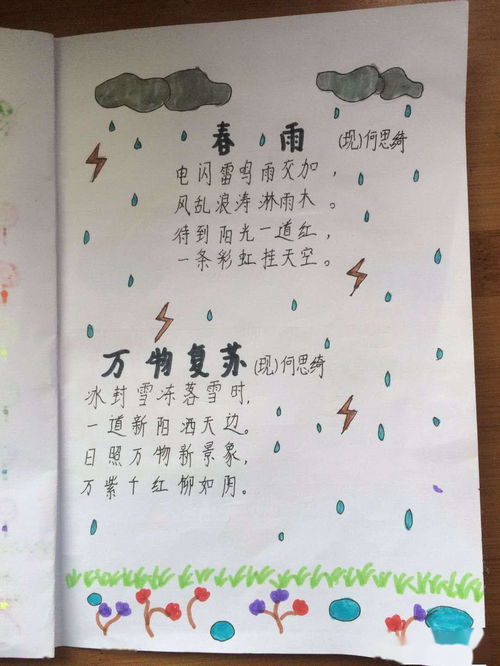 春雨 (现)何思绮
电闪雷鸣雨交加，
风乱浪涛淋雨木。
待到阳光一道红，
一条彩虹挂天空。
万物复苏 (现)何思绮
冰封雪冻落雪时，
一道新阳洒天边。
日照万物新景象，
万紫千红柳如阴。